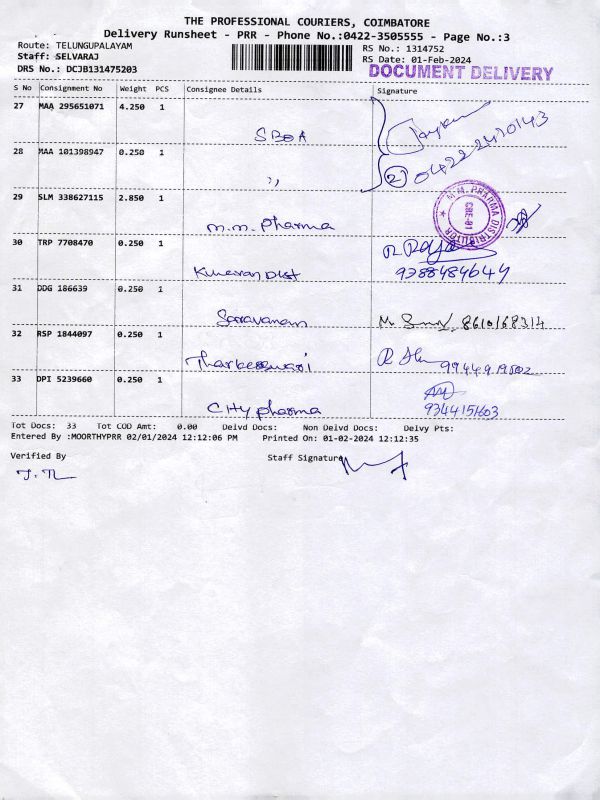 THE PROFESSIONAL COURIERS, COIMBATORE
Delivery Runsheet - PRR - Phone No.:0422-3505555 - Page No.:3
Route: TELUNGUPALAYAM
Staff: SELVARAJ
DRS No.: DCJB131475203
RS No.: 1314752
RS Date: 01-Feb-2024
DOCUMENT DELIVERY
S No Consignment No Weight PCS Consignee Details Signature
27 MAA 295651071 4.250 1
28 MAA 101398947 0.250 1 ,,
(2) 0422 2470143
29 SLM 338627115 2.850 1 m.m. Pharma
M.M. PHARMA DISTRIBUTOR CBE-01
30 TRP 7708470 0.250 1 Kumaran Dist
9388484644
31 DDG 186639 0.250 1 Saravanan
8610168314
32 RSP 1844097 0.250 1
33 DPI 5239660 0.250 1 City pharma
Tot Docs: 33 Tot COD Amt: 0.00 Delvd Docs: Non Delvd Docs: Delvy Pts:
Entered By :MOORTHYPRR 02/01/2024 12:12:06 PM Printed On: 01-02-2024 12:12:35
Verified By Staff Signature